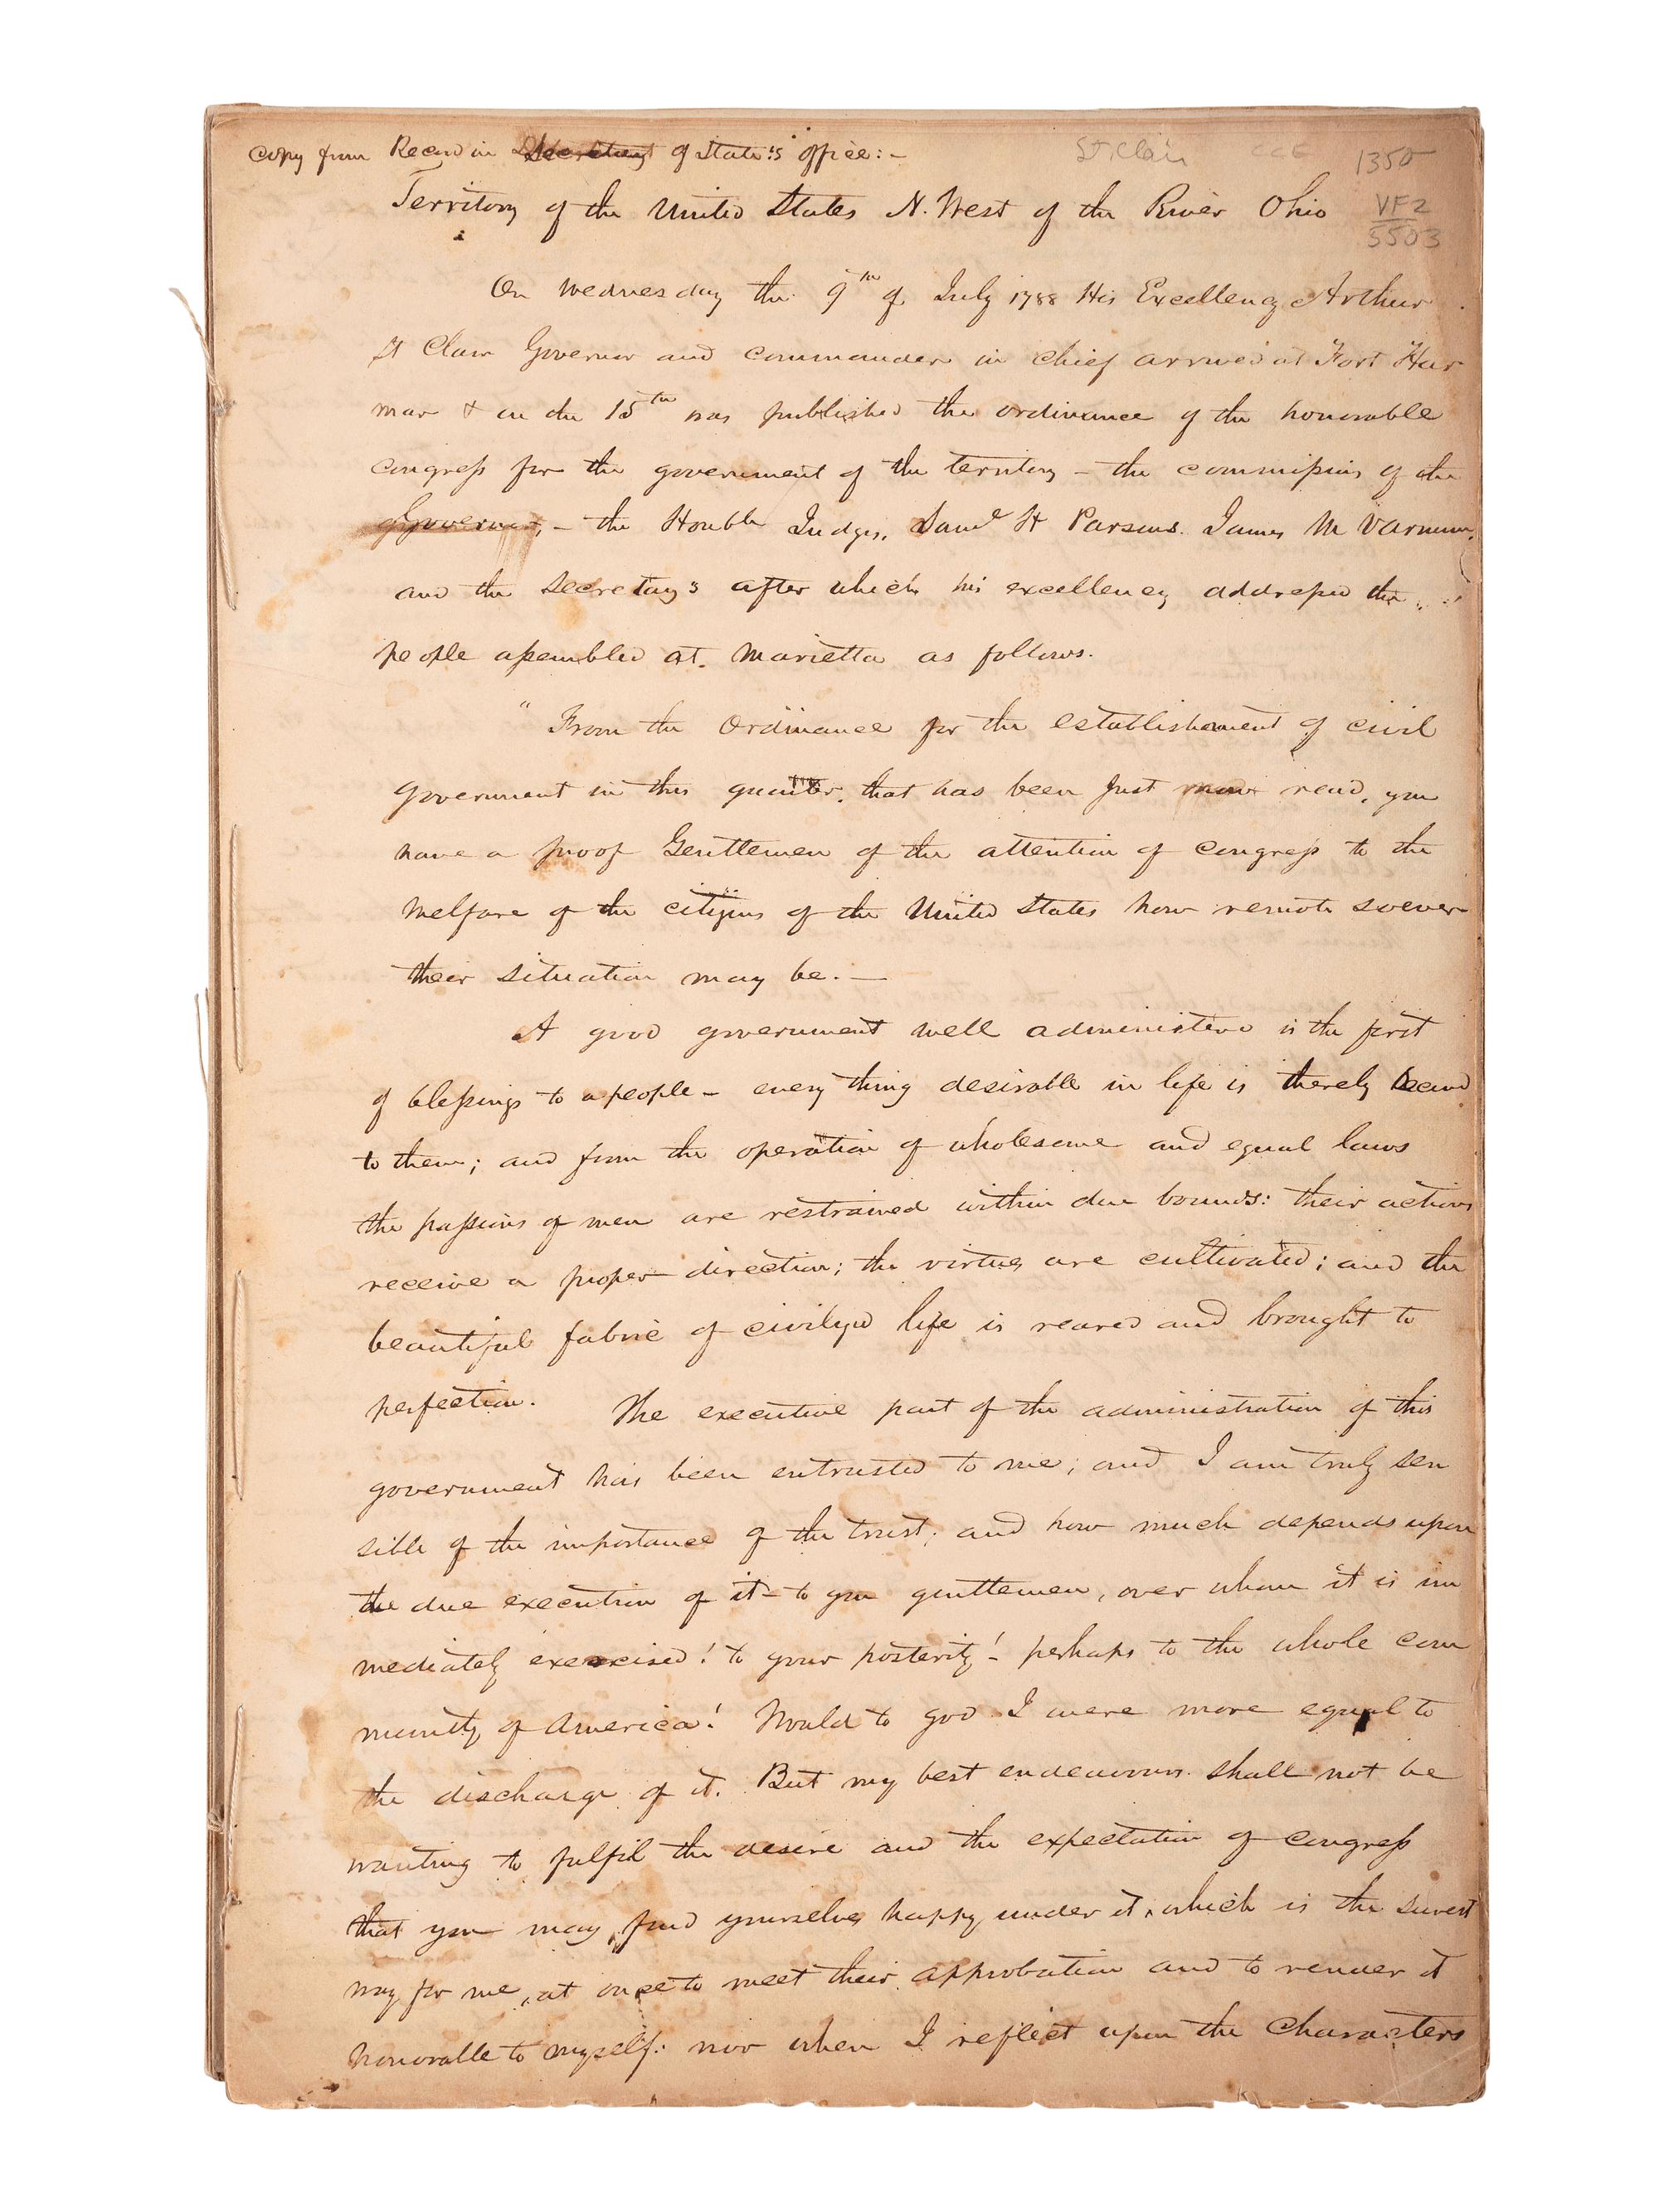 Copy from Record in Secretary of State's office:-
St. Clair CCE 1350
VF2
5503
Territory of the United States N. West of the River Ohio
On Wednesday the 9th of July 1788 His Excellency Arthur
St Clair Governor and commander in chief arrived at Fort Har
mar & on the 15th was published the ordinance of the honorable
Congress for the government of the territory - the commissions of the
Governor, - the Honble Judges, Saml H Parsons. James M Varnum,
and the Secretary's after which his excellency addressed the
people assembled at. Marietta as follows.
"From the Ordinance for the establishment of civil
government in this quarter, that has been just now read, you
have a proof Gentlemen of the attention of Congress to the
welfare of the citizens of the United States how remote soever
their situation may be. —
A good government well administerd is the first
of blessings to a people - every thing desirable in life is thereby secured
to them; and from the operation of wholesome and equal laws
the passions of men are restrained within due bounds: their actions
receive a proper direction; the virtues are cultivated; and the
beautiful fabric of civilized life is reared and brought to
perfection. The executive part of the administration of this
government has been entrusted to me; and I am truly sen
sible of the importance of the trust; and how much depends upon
the due execution of it - to you gentlemen, over whom it is im
mediately exercised! to your posterity! - perhaps to the whole com
munity of America! Would to god I were more equal to
the discharge of it. But my best endeavours shall not be
wanting to fulfil the desire and the expectation of Congress
that you may find yourselves happy under it, which is the surest
way for me, at once to meet their approbation and to render it
honorable to myself: nor when I reflect upon the Characters